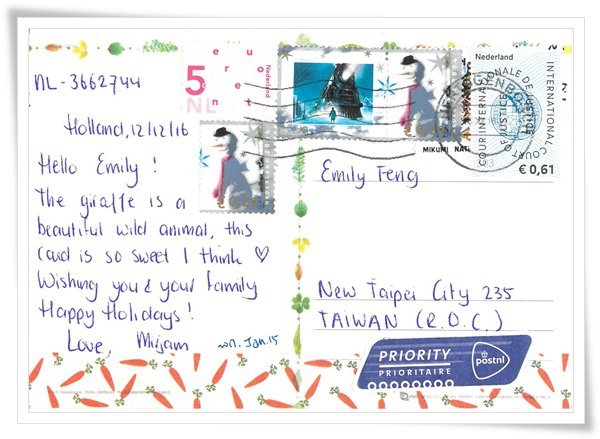 NL-3662744
Holland, 12/12/16
Hello Emily!
The giraffe is a
beautiful wild animal, this
card is so sweet I think ♡
Wishing you & your family
Happy Holidays!
Love, Mirjam
Jan.15
5
euro
cent
Nederland
NL
MIKUMI NATI
Nederland
COUR INTERNATIONALE DE JUSTICE
INTERNATIONAL COURT OF JUSTICE
€ 0,61
Emily Feng
New Taipei City 235
TAIWAN (R.O.C.)
PRIORITY
PRIORITAIRE
postnl